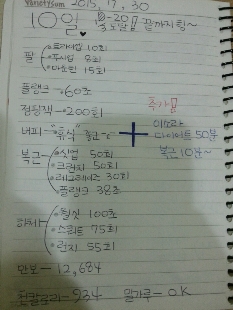 VarietySum 2015, 17, 30
10일 D-20 끝까지 힘~
팔 트라이셉 10회
푸시업 8회
더소핀 15회
플랭크 → 60초
점핑잭 → 200회
버피 → 휴식
추가
이소라
다이어트 50분
복근 10분~
복근 싯업 50회
크런치 50회
레그레이즈 30회
플랭크 38초
하체 월싯 100초
스쿼트 75회
런지 55회
만보 - 12,684
칼로리 - 934 밀가루 - O.K